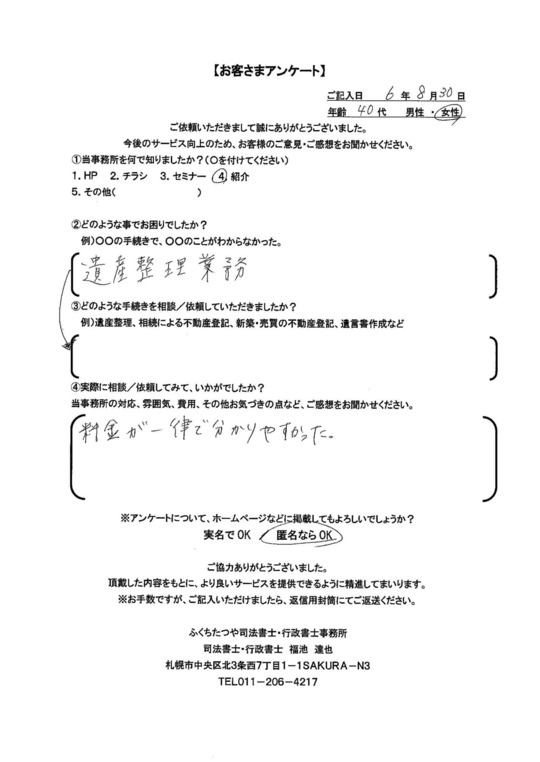 【お客さまアンケート】
ご記入日 6 年 8 月 30 日
年齢 40 代 男性 ・ 女性
ご依頼いただきまして誠にありがとうございました。
今後のサービス向上のため、お客様のご意見・ご感想をお聞かせください。
①当事務所を何で知りましたか？(〇を付けてください)
1. HP 2. チラシ 3. セミナー 4 紹介
5. その他( )
②どのような事でお困りでしたか？
例)〇〇の手続きで、〇〇のことがわからなかった。
遺産整理業務
③どのような手続きを相談／依頼していただきましたか？
例)遺産整理、相続による不動産登記、新築・売買の不動産登記、遺言書作成など
④実際に相談／依頼してみて、いかがでしたか？
当事務所の対応、雰囲気、費用、その他お気づきの点など、ご感想をお聞かせください。
料金が一律で分かりやすかった。
※アンケートについて、ホームページなどに掲載してもよろしいでしょうか？
実名でOK ／ 匿名ならOK
ご協力ありがとうございました。
頂戴した内容をもとに、より良いサービスを提供できるように精進してまいります。
※お手数ですが、ご記入いただけましたら、返信用封筒にてご返送ください。
ふくちたつや司法書士・行政書士事務所
司法書士・行政書士 福池 達也
札幌市中央区北3条西7丁目1－1SAKURA－N3
TEL011－206－4217